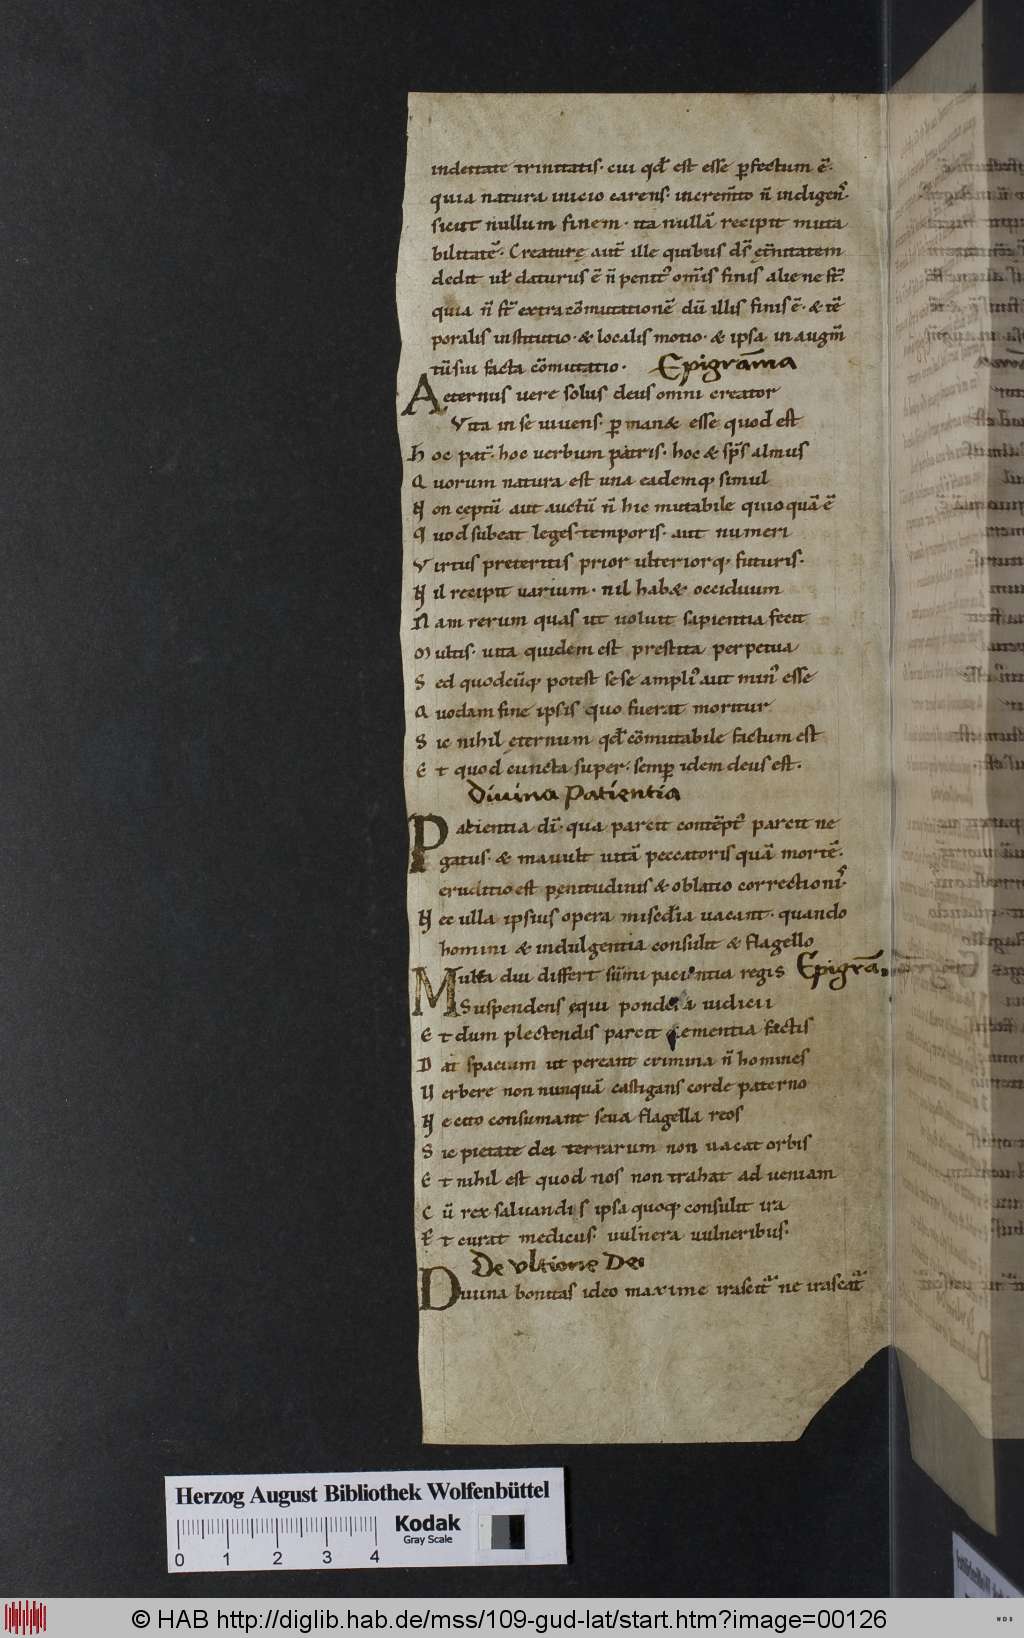 indeitate trinitatis· cui qd̄ est esse ꝑfectum ē·
quia natura inicio carens· increm̄to n̄ indigen᷒·
sicut nullum finem· ita nullā recipit muta
bilitatē· Creature aut̄ ille quibus ds̄ et̄nitatem
dedit ul̄ daturus ē n̄ penit᷒ om̄is finis aliene st̄·
quia n̄ st̄ extra cōmutationē dū illis finis ē· & tē
poralis institutio· & localis motio· & ipsa in augm̄
tū siui facta cōmutatio· Epigrāma
Aeternus uere solus deus omni creator
Vita in se uiuens· ꝑman& esse quod est
Hoc pat̄· hoc uerbum patris· hoc & sp̄s almus
Quorum natura est una eademq; simul
Non ceptū aut auctū n̄ hic mutabile quicquā ē
Quod subeat leges temporis· aut numeri
Virtus preteritis prior ulteriorq; futuris·
Nil recipit uarium· nil hab& occiduum
Nam rerum quas ut uoluit sapientia fecit
Multis· uita quidem est prestita perpetua
Sed quodcūq; potest sese ampli᷒ aut min᷒ esse
Quodam fine ipsis quo fuerat moritur
Sic nihil ęternum qd̄ cōmutabile factum est
Et quod cuncta super· semꝑ idem deus est·
Diuina Patientia
Patientia dī· qua parcit contēpt᷒ parcit ne
gatus· & mauult uitā peccatoris quā mortē·
eruditio est pęnitudinis & oblatio correctioni᷒·
Nec ulla ipsius opera misc̄dia uacant· quando
homini & indulgentia consulit & flagello
Multa diu differt sūmi pacientia regis Epigrā·
Suspendens ęqui pondera iudicii
Et dum plectendis parcit clementia factis
Dat spacium ut pereant crimina n̄ homines
Verbere non nunquā castigans corde paterno
Ne cito consumant seua flagella reos
Sic pietate dei terrarum non uacat orbis
Et nihil est quod nos non trahat ad ueniam
Cū rex saluandis ipsa quoq; consulit ira
Et curat medicus· uulnera uulneribus·
De Vltione Dei
Diuina bonitas ideo maxime irascit᷑ ne irascat᷑
Herzog August Bibliothek Wolfenbüttel
Kodak
Gray Scale
0 1 2 3 4
© HAB http://diglib.hab.de/mss/109-gud-lat/start.htm?image=00126
WDB